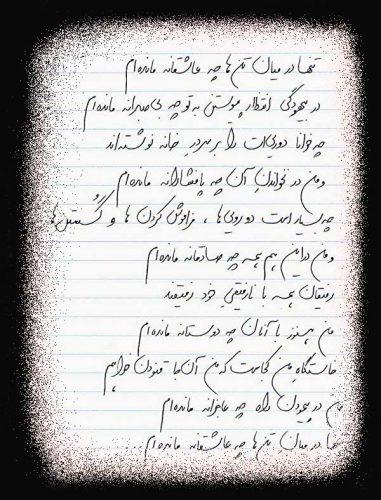 تنها در میان تن ها چه عاشقانه مانده ام
در بیهودگی انتظار پیوستن به تو چه بی صبرانه مانده ام
چه خوانا دوری ات را بر سر در خانه نوشته اند
و من در نخواندن آن چه پافشارانه مانده ام
چه بسیار است دورویی ها ، فراموش کردن ها و گسستن ها
و من در این همهمه چه صادقانه مانده ام
رفیقان همه با نارفیقی خود رفیقند
من هنوز با آنان چه دوستانه مانده ام
خاستگاه من کجاست که من آن جا غنودن خواهم
من در پیمودن راه چه عاجزانه مانده ام
تنها در میان تن ها چه عاشقانه مانده ام...